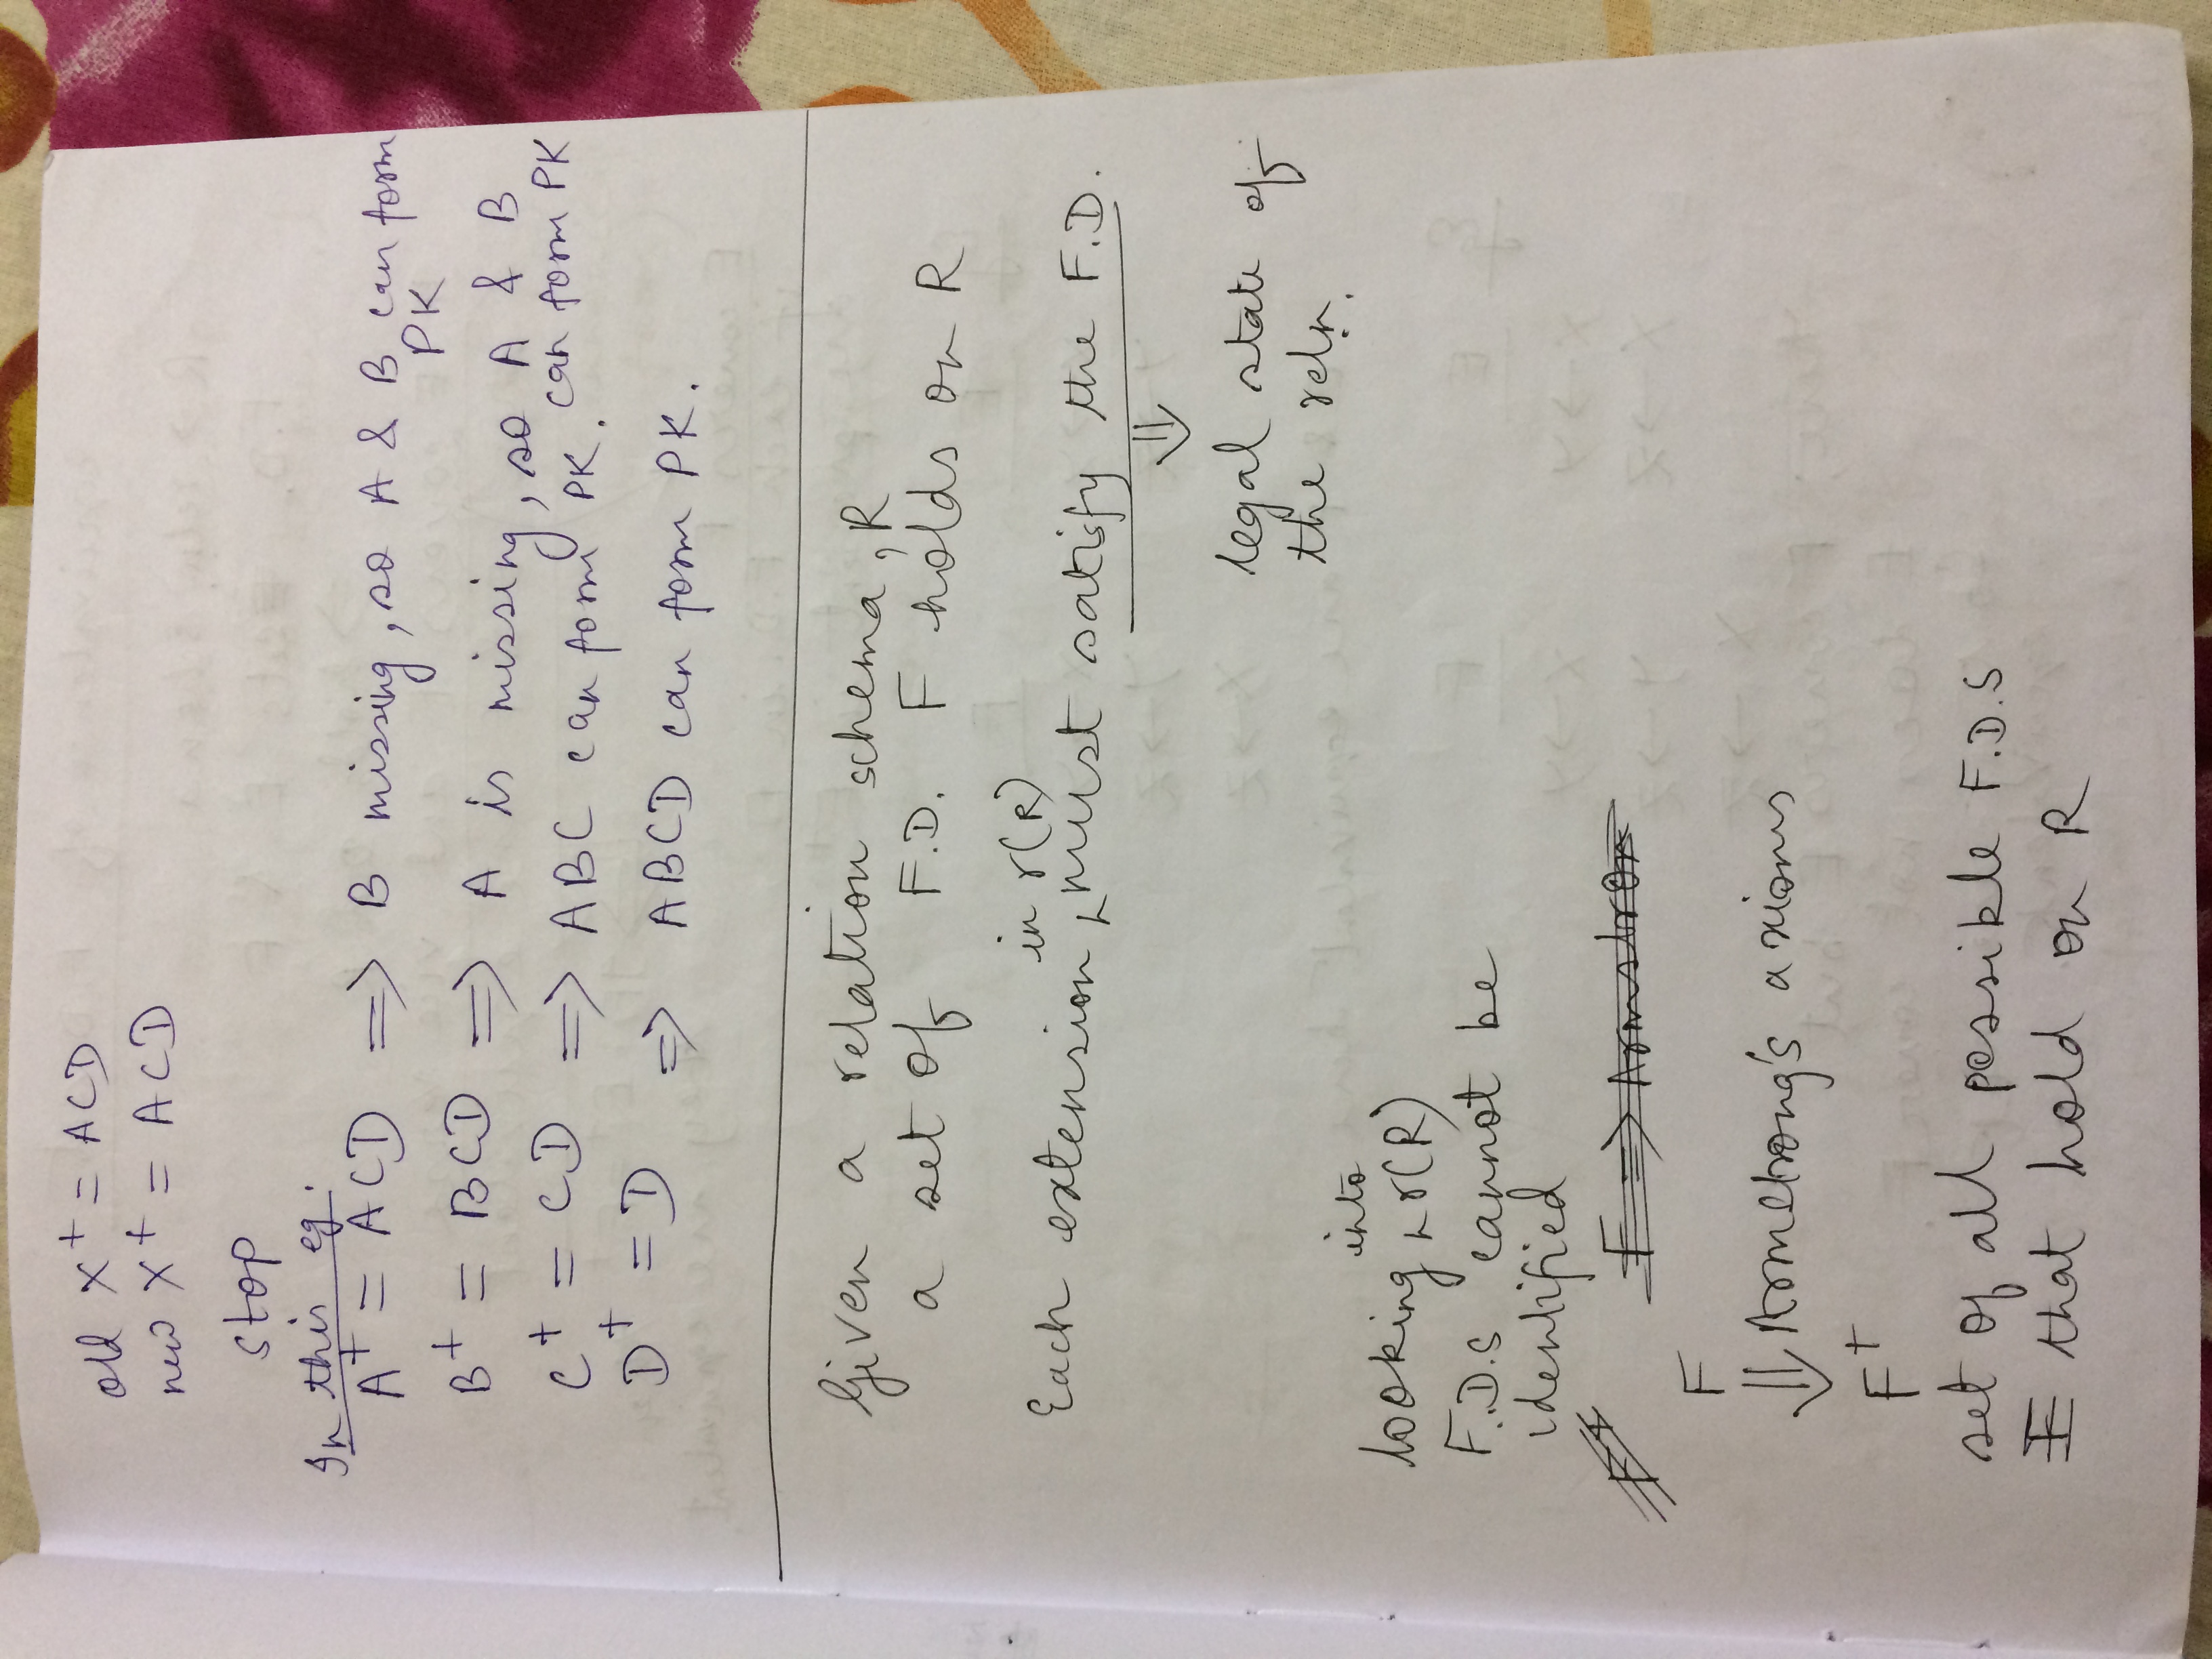 old X+ = ACD
new X+ = ACD
stop
In this eg.
A+ = ACD => B missing, so A & B can form
PK
B+ = BCD => A is missing, so A & B
can form PK
C+ = CD => ABC can form PK.
D+ = D => ABCD can form PK.
Given a relation schema, R
a set of F.D. F holds on R
in r(R)
Each extension, must satisfy the F.D.
⇓
legal state of
the reln.
into
looking r(R)
F.D.S cannot be
identified
F => Armstron
F
⇓ Armstrong's axioms
F+
set of all possible F.D.S
that hold on R